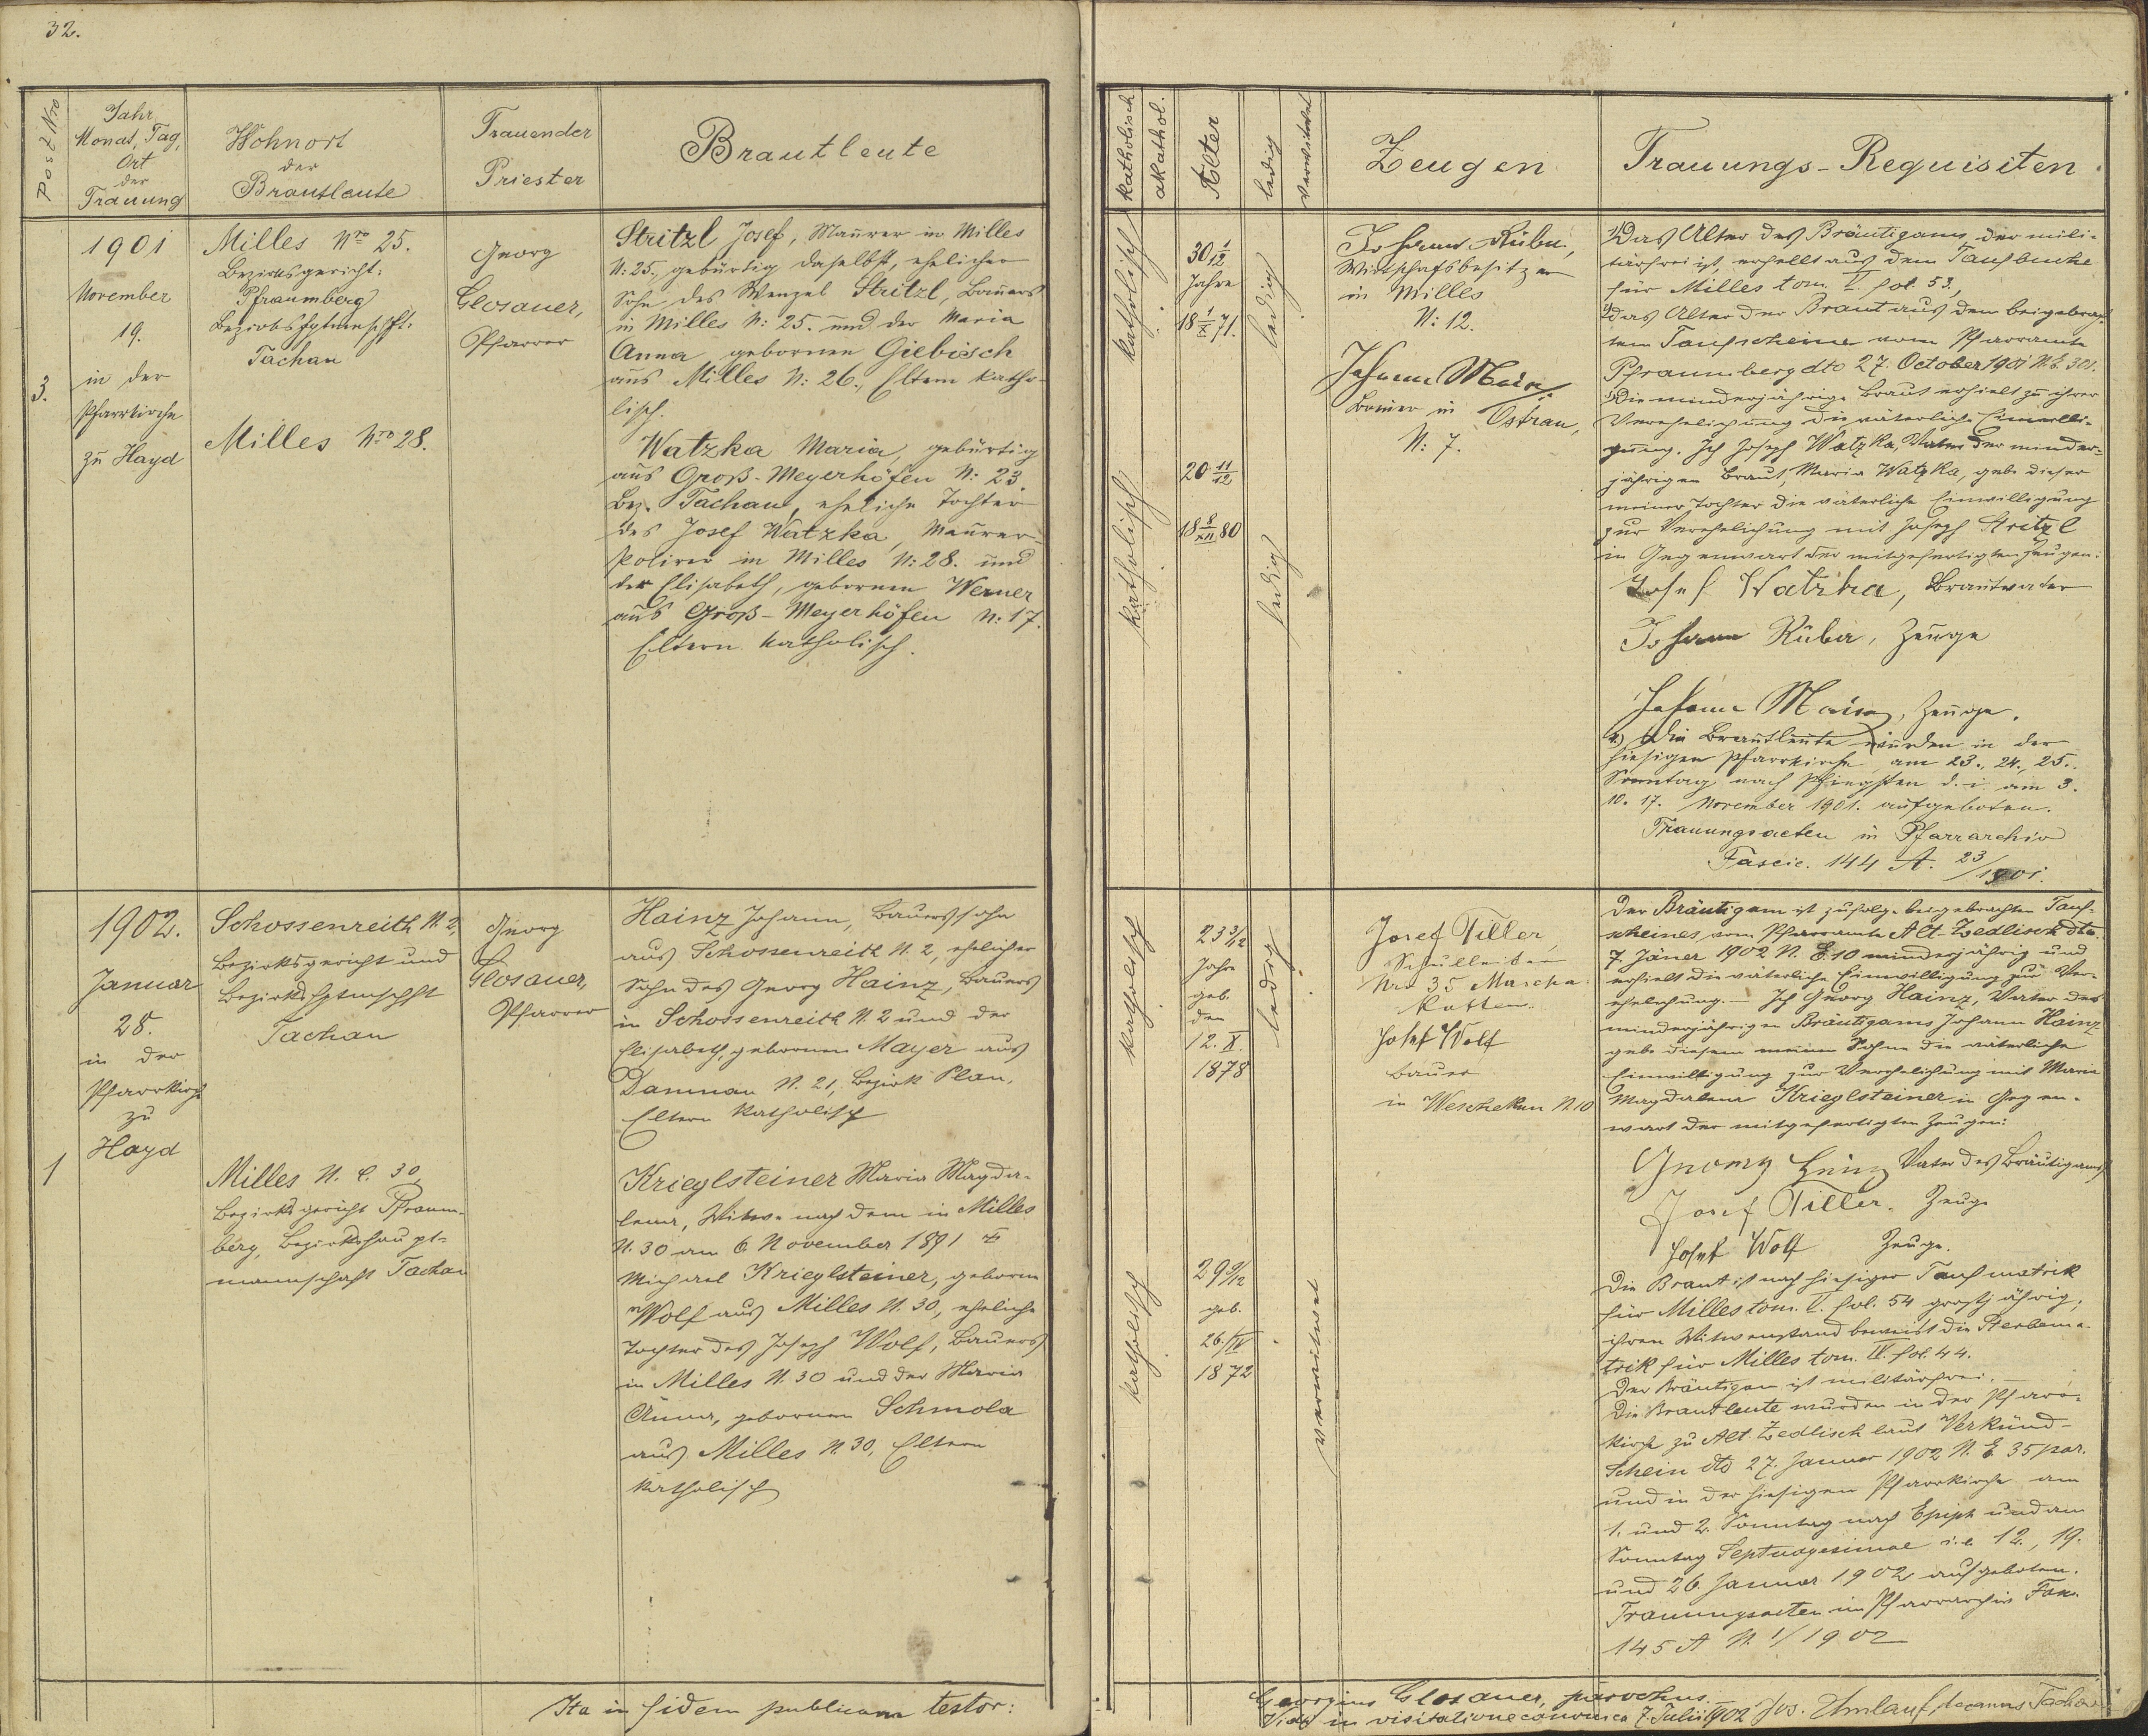 32.
Post Nro
Jahr
Monat, Tag,
Ort
der
Trauung
Wohnort
der
Brautleute
Trauender
Priester
Brautleute
3.
1901
November
19.
in der
Pfarrkirche
zu Hayd
Milles Nro 25.
Bezirksgericht:
Pfraumberg
Bezirkshptmschft:
Tachau
Milles Nro 28.
Georg
Glosauer,
Pfarrer
Stritzl Josef, Maurer in Milles
N: 25., gebürtig daselbst, ehelicher
Sohn des Wenzel Stritzl, Bauers
in Milles N: 25. und der Maria
Anna, gebornen Giebisch
aus Milles N: 26., Eltern katho-
lisch.
Watzka Maria, gebürtig
aus Groß-Meyerhöfen N: 23.
Bez. Tachau, eheliche Tochter
des Josef Watzka, Maurer-
Polirer in Milles N: 28. und
der Elisabeth, gebornen Werner
aus Groß-Meyerhöfen N: 17.
Eltern katholisch.
1
1902.
Januar
28.
in der
Pfarrkirche
zu
Hayd
Schossenreith N. 2,
Bezirksgericht und
Bezirkshptmschft
Tachau
Milles N. C. 30
Bezirksgericht Pfraum-
berg, Bezirkshaupt-
mannschaft Tachau
Georg
Glosauer,
Pfarrer
Hainz Johann, Bauerssohn
aus Schossenreith N. 2, ehelicher
Sohn des Georg Hainz, Bauers
in Schossenreith N. 2 und der
Elisabeth, gebornen Mayer aus
Damnau N. 21, Bezirk Plan,
Eltern katholisch
Krieglsteiner Maria Magda-
lena, Witwe nach dem in Milles
N. 30 am 6. November 1891 †
Michael Krieglsteiner, geborne
Wolf aus Milles N. 30, eheliche
Tochter des Joseph Wolf, Bauers
in Milles N. 30 und der Maria
Anna, gebornen Schmola
aus Milles N. 30, Eltern
katholisch
Ita in fidem publicam testor:
katholisch
akathol.
Alter
ledig
verwitwet
Zeugen
Trauungs-Requisiten
katholisch
30 1/12
Jahre
18 1/X 71.
ledig
katholisch
20 11/12
18 8/XII 80
ledig
Johann Rüba,
Wirtschaftsbesitzer
in Milles
N: 12.
Johann
Bauer in Ostrau,
N: 7.
1) Das Alter des Bräutigams, der mili-
tärfrei ist, erhellt aus dem Taufbuche
für Milles tom. I. fol. 53.,
2) das Alter der Braut aus dem beigebrach-
ten Taufscheine vom Pfarramte
Pfraumberg dto 27. October 1901 N.E. 301.
3) Die minderjährige Braut erhielt zu ihrer
Verehelichung die väterliche Einwilli-
gung. Ich Joseph Watzka, Vater der minder-
jährigen Braut, Maria Watzka, gebe dieser
meiner Tochter die väterliche Einwilligung
zur Verehelichung mit Joseph Stritzl
in Gegenwart der mitgefertigten Zeugen:
Josef Watzka, Brautvater
Johann Rüba, Zeuge
Johann, Zeuge.
4.) Die Brautleute wurden in der
hiesigen Pfarrkirche am 23., 24., 25.
Sonntag nach Pfingsten d. i. am 3.
10. 17. November 1901. aufgeboten.
Trauungsacten in Pfarrarchiv
Fascic. 144 A. 23/1901.
katholisch
23 3/12
Jahre
geb.
den
12. X.
1878
ledig
katholisch
29 9/12
geb.
26./IV
1872
verwitwet
Josef Tiller,
Schulleiter
Nro 35 Mascha-
kotten.
Josef Wolf
Bauer
in Wescheken N. 10
Der Bräutigam ist zufolge beigebrachten Tauf-
scheines vom Pfarramte Alt-Zedlisch dto.
7. Jäner 1902 N. E. 10 minderjährig und
erhielt die väterliche Einwilligung zur Ver-
ehelichung. – Ich Georg Hainz, Vater des
minderjährigen Bräutigams Johann Hainz
gebe diesem meinem Sohne die väterliche
Einwilligung zur Verehelichung mit Maria
Magdalena Krieglsteiner in Gegen-
wart der mitgefertigten Zeugen:
Georg Heinz Vater des Bräutigams
Josef Tiller. Zeuge
Josef Wolf Zeuge.
Die Braut ist nach hiesiger Taufmatrik
für Milles tom. I. fol. 54 großjährig;
ihren Witwenstand beweist die Sterbema-
trik für Milles tom. II. fol. 44.
Der Bräutigam ist militärfrei. –
Die Brautleute wurden in der Pfarr-
kirche zu Alt-Zedlisch laut Verkünd-
Schein dto 27. Januar 1902 N. E. 35 par.
und in der hiesigen Pfarrkirche am
1. und 2. Sonntag nach Epiph. und am
Sonntag Septuagesimae i. e. 12., 19.
und 26. Januar 1902 aufgeboten.
Trauungsacten im Pfarrarchiv Fas.
145 A N. 1/1902
Georgius Glosauer, parochus.
Vidi in visitatione canonica 7. Julii 1902 Jos. Umlauf, decanus Tachov.